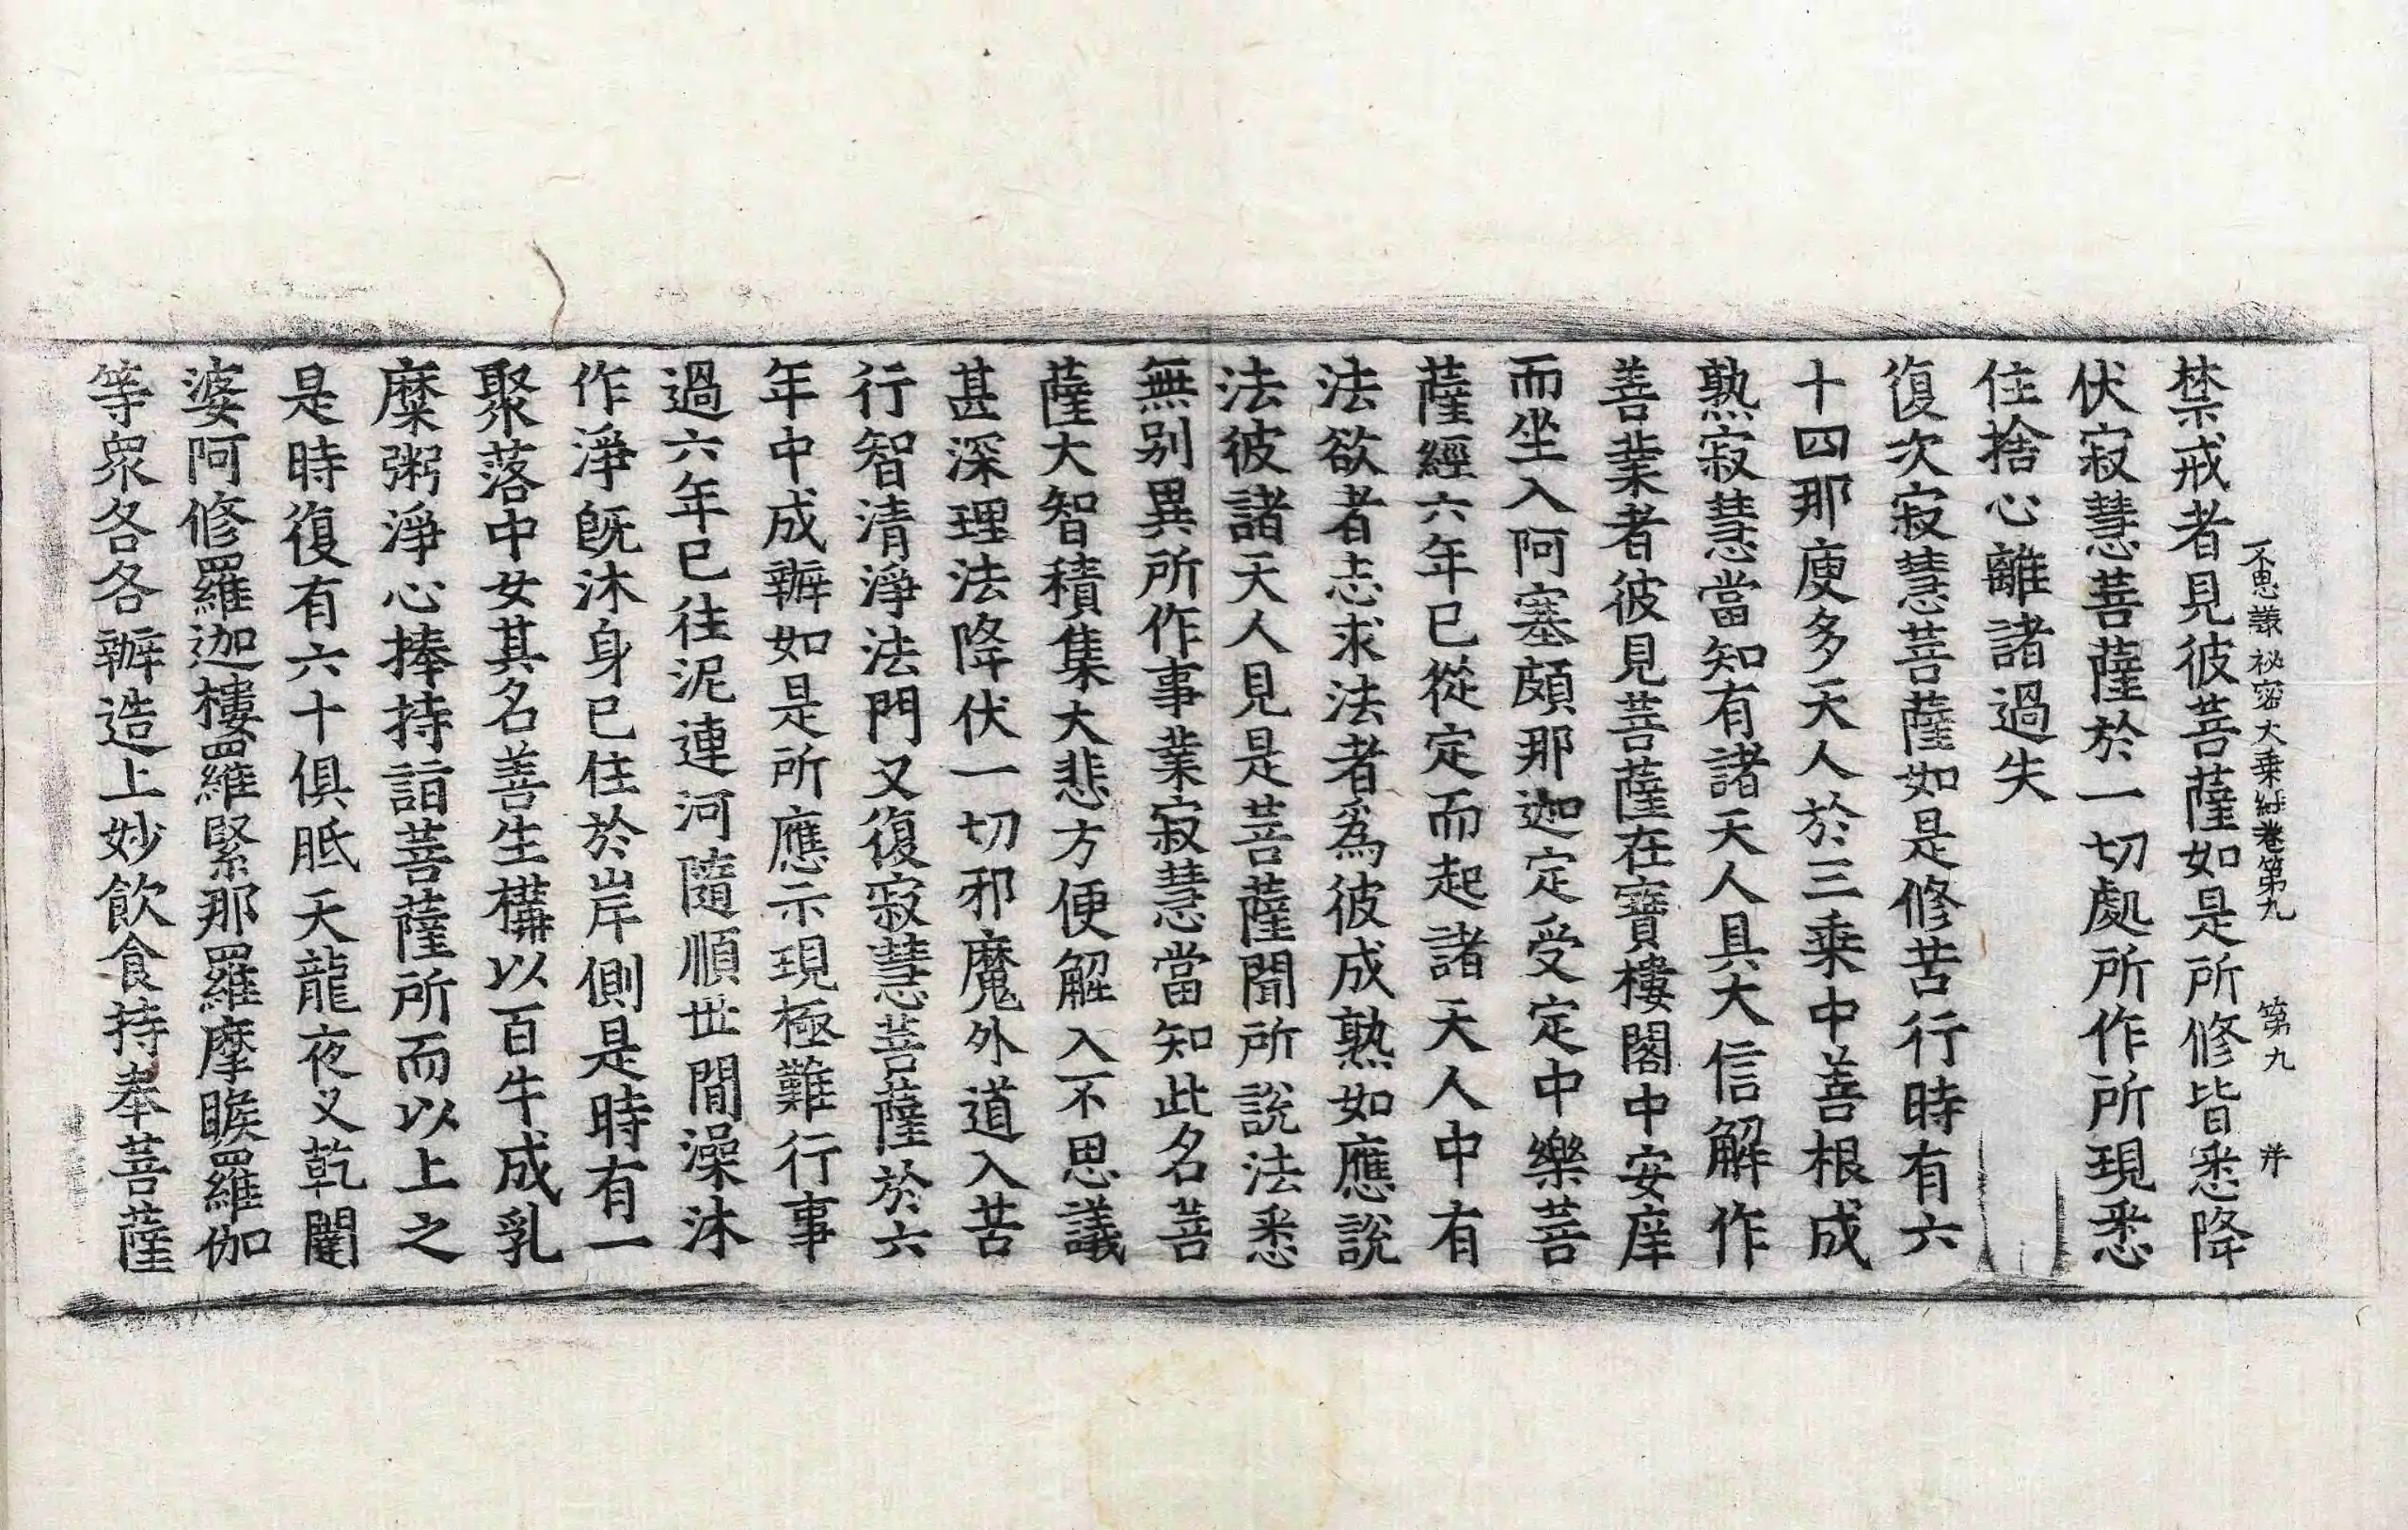 不思議祕密大乘經卷第九 第九 幷
禁戒者見彼菩薩如是所修皆悉降
伏寂慧菩薩於一切處所作所現悉
住捨心離諸過失
復次寂慧菩薩如是修苦行時有六
十四那庾多天人於三乘中善根成
熟寂慧當知有諸天人具大信解作
善業者彼見菩薩在寶樓閣中安庠
而坐入阿塞頗那迦定受定中樂菩
薩經六年已從定而起諸天人中有
法欲者志求法者爲彼成熟如應說
法彼諸天人見是菩薩聞所說法悉
無別異所作事業寂慧當知此名菩
薩大智積集大悲方便解入不思議
甚深理法降伏一切邪魔外道入苦
行智清淨法門又復寂慧菩薩於六
年中成辦如是所應示現極難行事
過六年已往泥連河隨順世閒澡沐
作淨旣沐身已住於岸側是時有一
聚落中女其名善生構以百牛成乳
糜粥淨心捧持詣菩薩所而以上之
是時復有六十俱胝天龍夜叉乾闥
婆阿修羅迦樓羅緊那羅摩睺羅伽
等衆各各辦造上妙飮食持奉菩薩